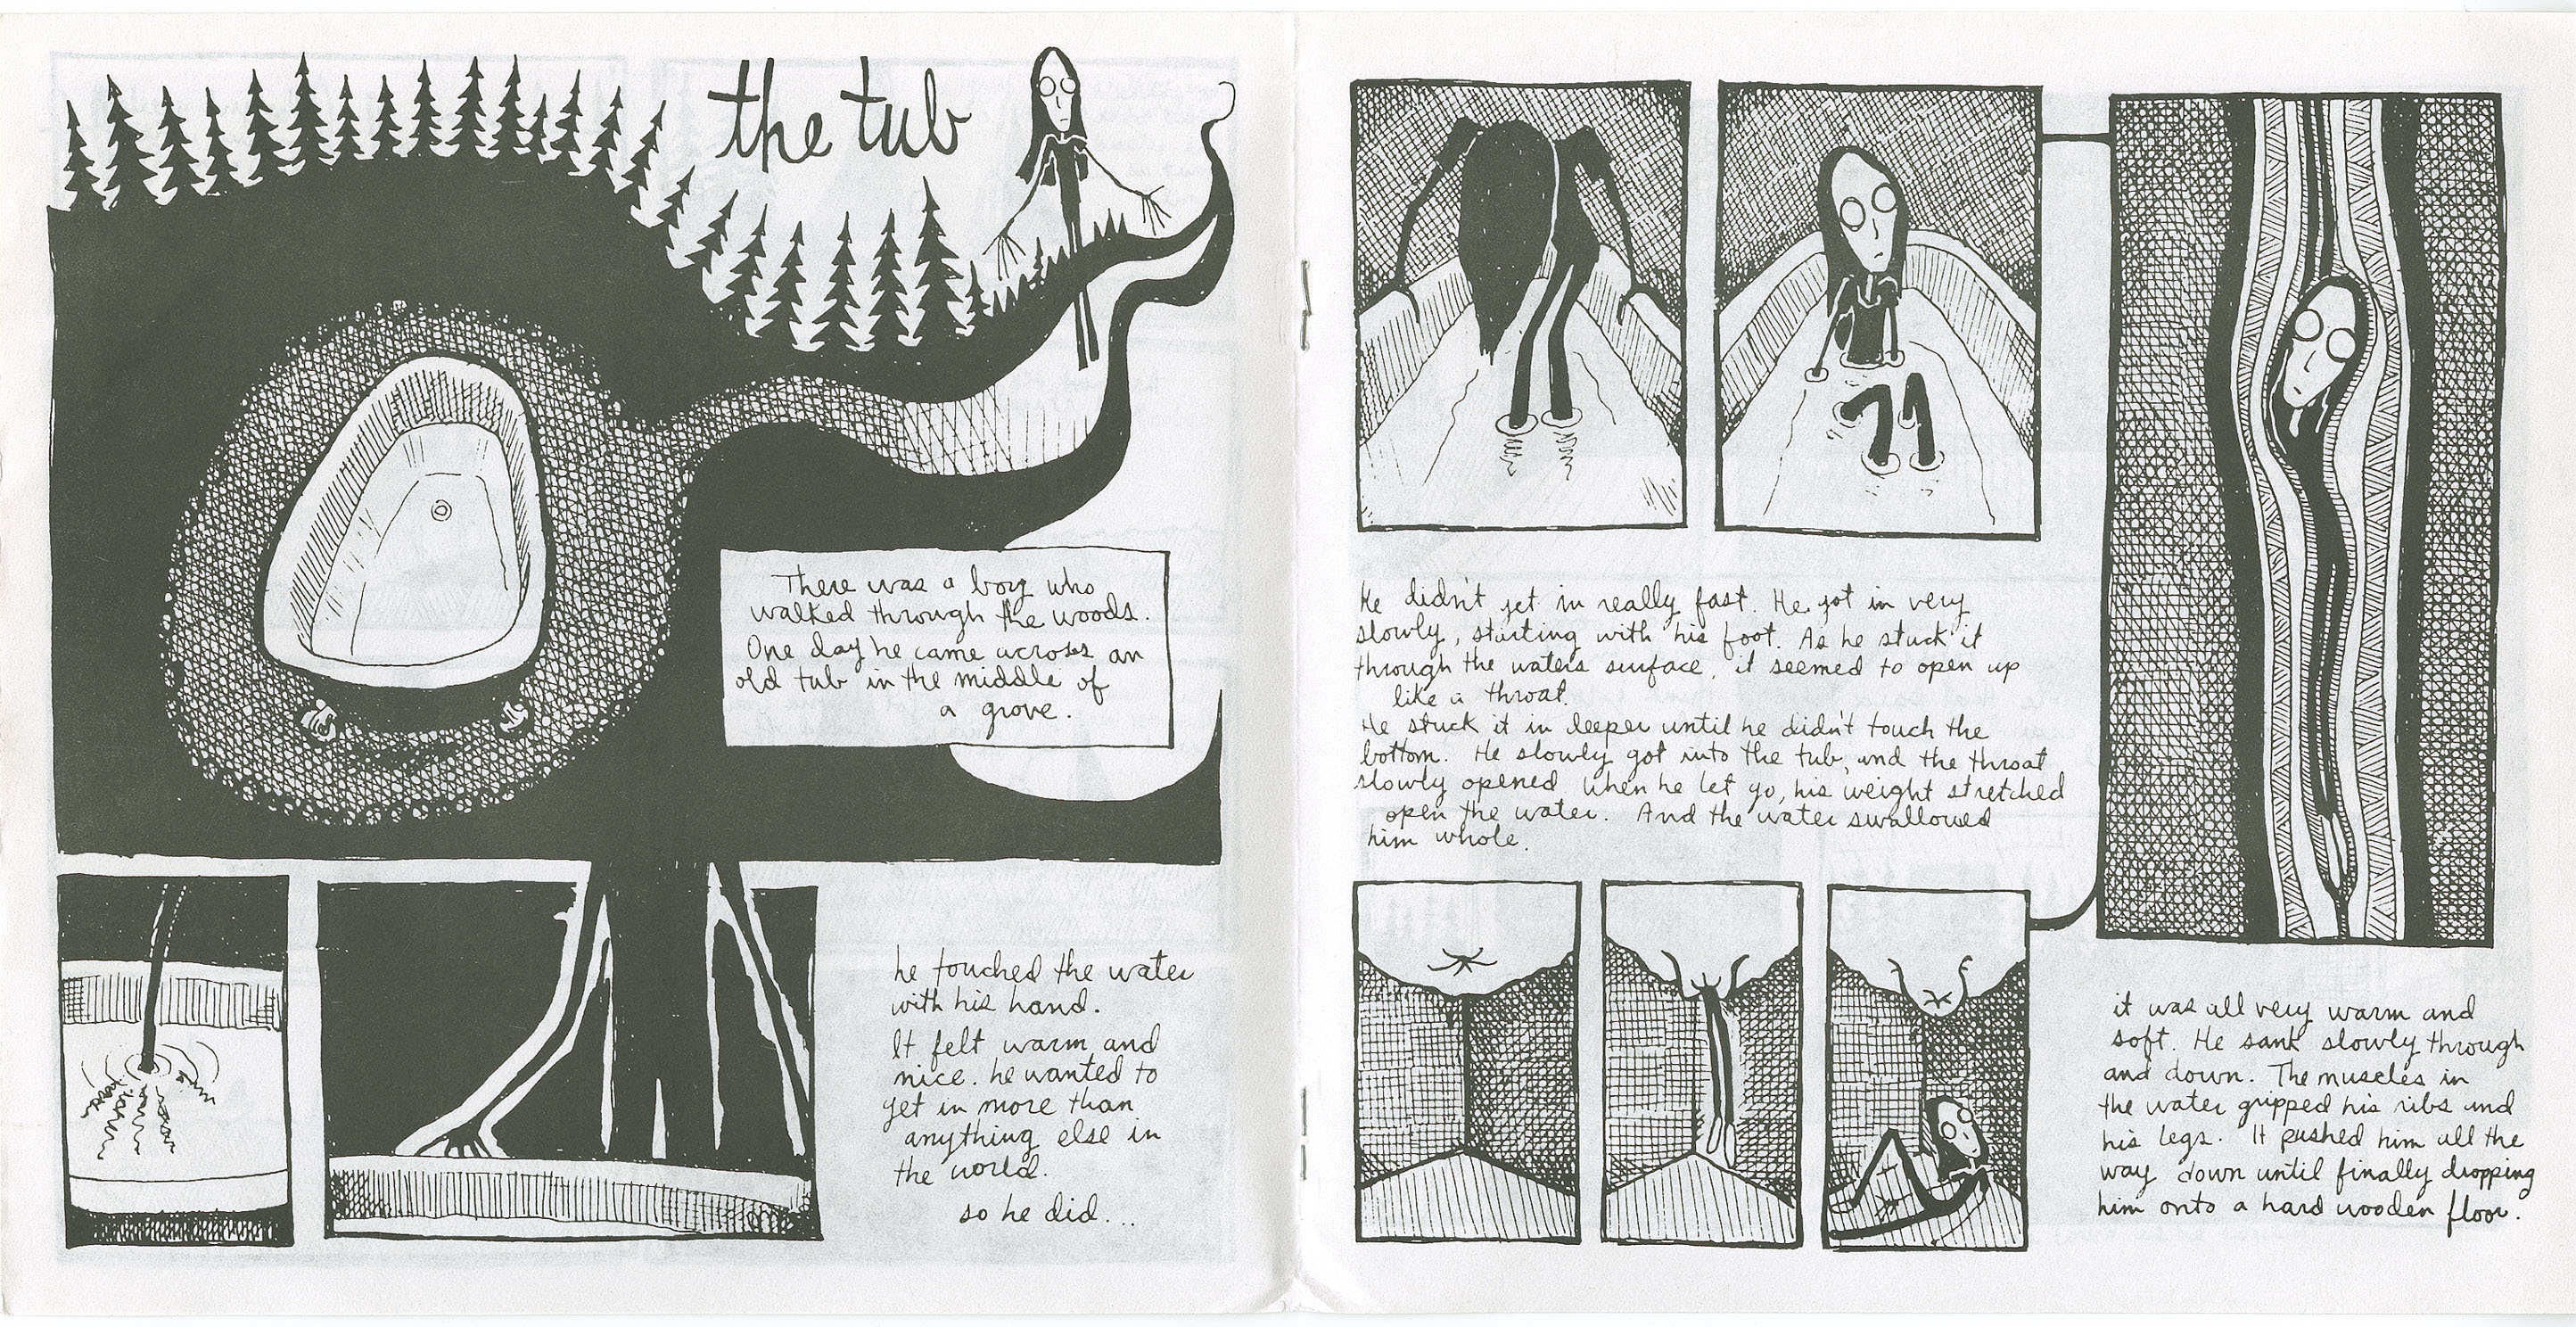 the tub
There was a boy who
walked through the woods.
One day he came across an
old tub in the middle of
a grove.
he touched the water
with his hand.
It felt warm and
nice. he wanted to
get in more than
anything else in
the world.
so he did...
He didn't get in really fast. He got in very
slowly, starting with his foot. As he stuck it
through the waters surface, it seemed to open up
like a throat.
He stuck it in deeper until he didn't touch the
bottom. He slowly got into the tub, and the throat
slowly opened. When he let go, his weight stretched
open the water. And the water swallowed
him whole.
it was all very warm and
soft. He sank slowly through
and down. The muscles in
the water gripped his ribs and
his legs. It pushed him all the
way down until finally dropping
him onto a hard wooden floor.